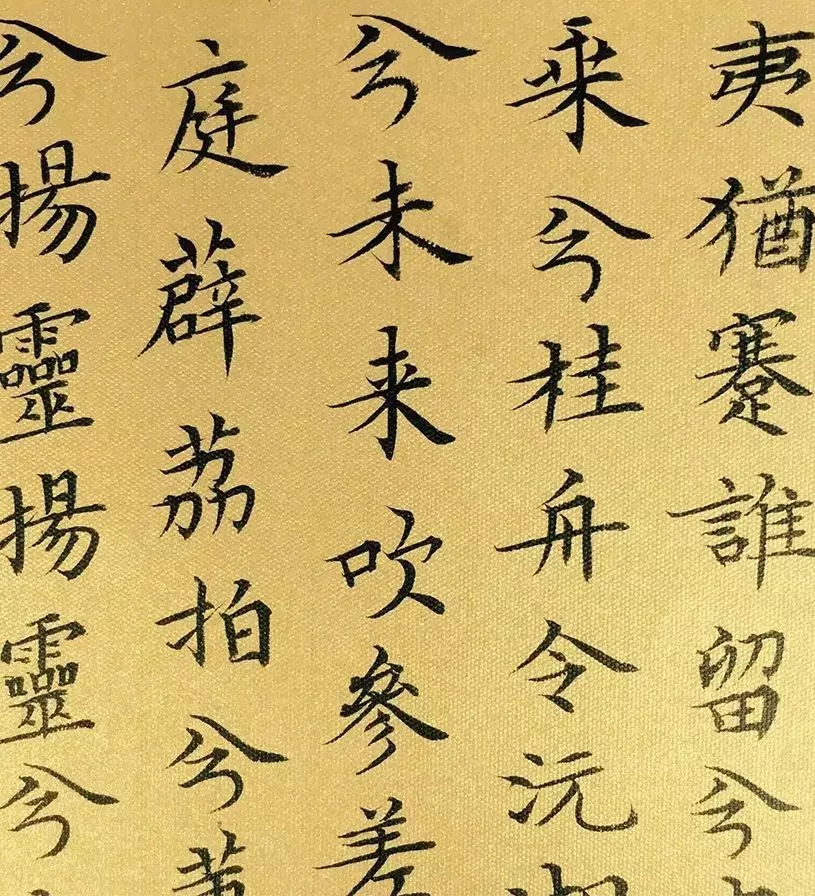 夷猶蹇誰留兮
乗兮桂舟令沅
兮未来吹參差
庭薜荔拍兮
兮揚靈揚靈兮